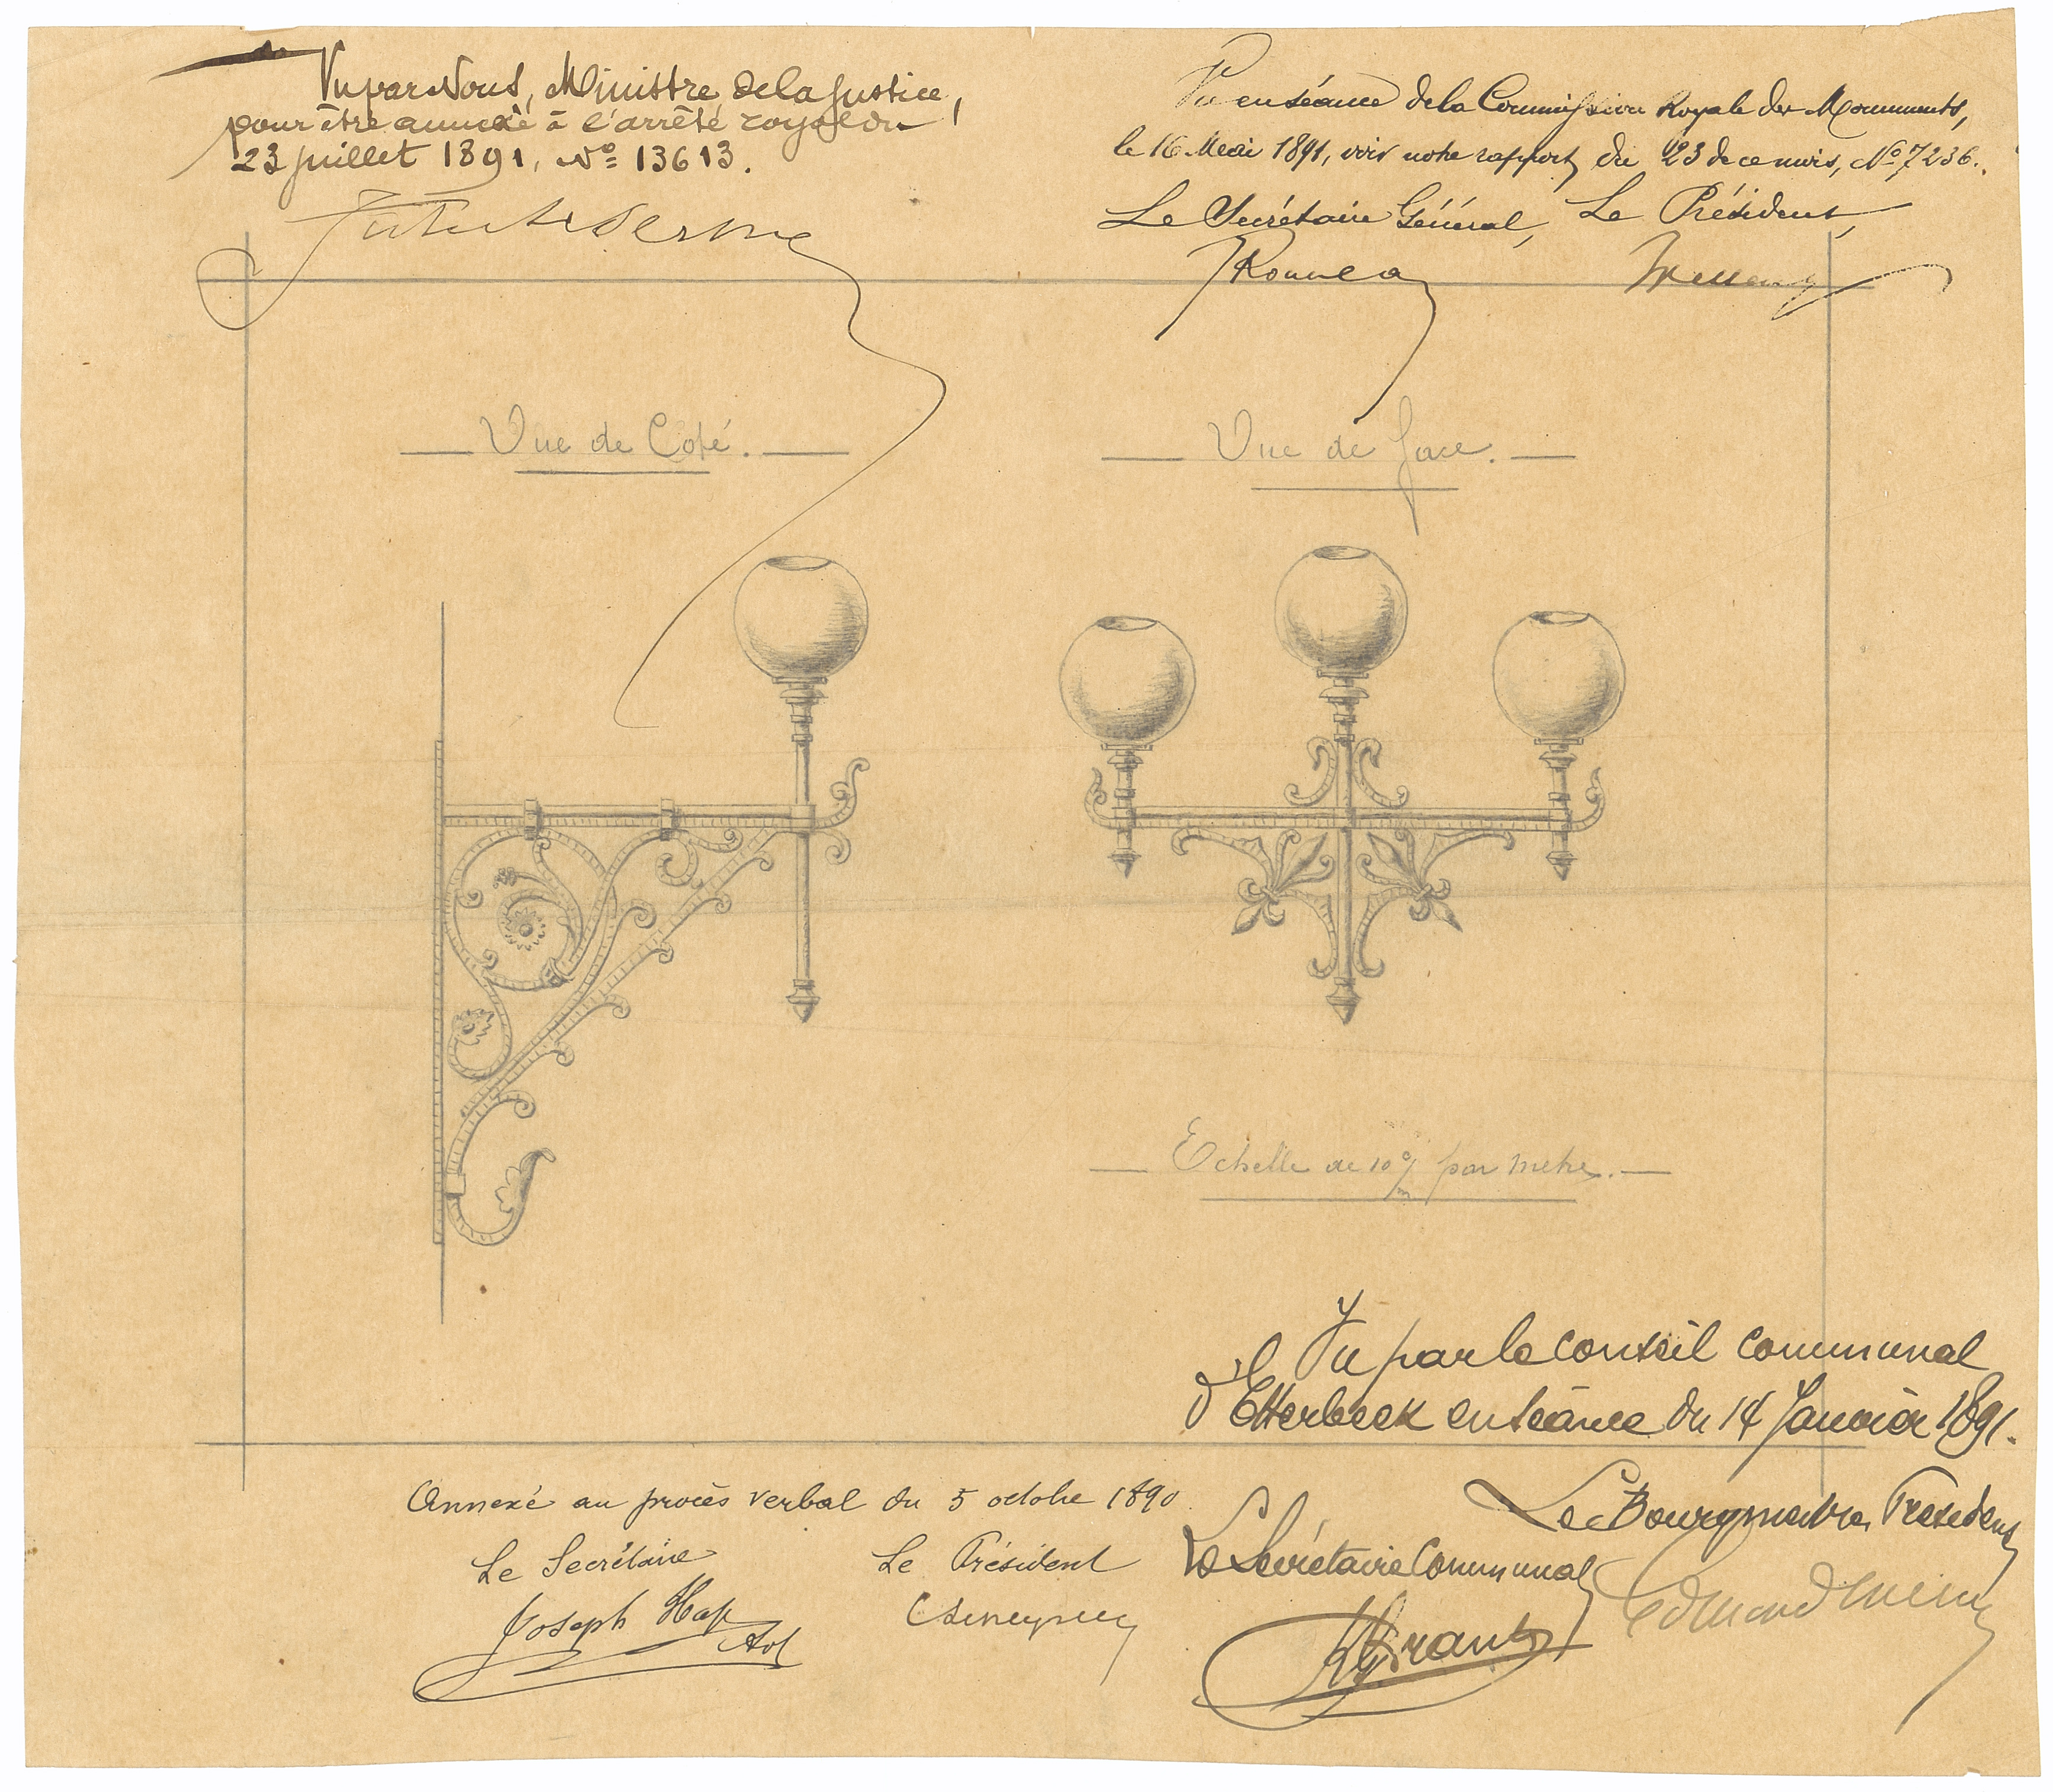 Vu par Nous, Ministre de la Justice,
pour être annexé à l'arrêté royal du
23 juillet 1891, No 13613.
Vu en séance de la Commission Royale des Monuments,
le 16 Mai 1891, voir notre rapport du 23 de ce mois, No 7236.
Le Secrétaire Général, Le Président,
Vue de Coté.
Vue de face.
Echelle de 10 c/m par metre.
Vu par le conseil communal
d'Etterbeek en séance du 14 Janvier 1891.
Annexé au procès verbal du 5 octobre 1890
Le Secrétaire
Le Président
Joseph Hap
Le Bourgmestre Président
Le Secrétaire Communal